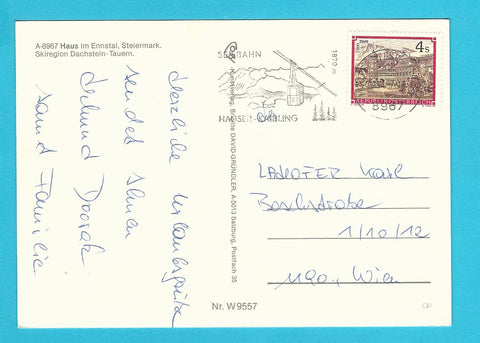 A-8967 Haus im Ennstal, Steiermark.
Skiregion Dachstein-Tauern.
Herzliche Urlaubsgrüße
sendet Ihnen
Helmut Dvorak
samt Familie
Kunstverlag, DAVID-GRÜNDLER, A-5013 Salzburg, Postfach 35
Nr. W9557
SEILBAHN
1870 m
HAUSER KAIBLING
4 S
REPUBLIK ÖSTERREICH
8967
Karl
1/10/12
1190, Wien